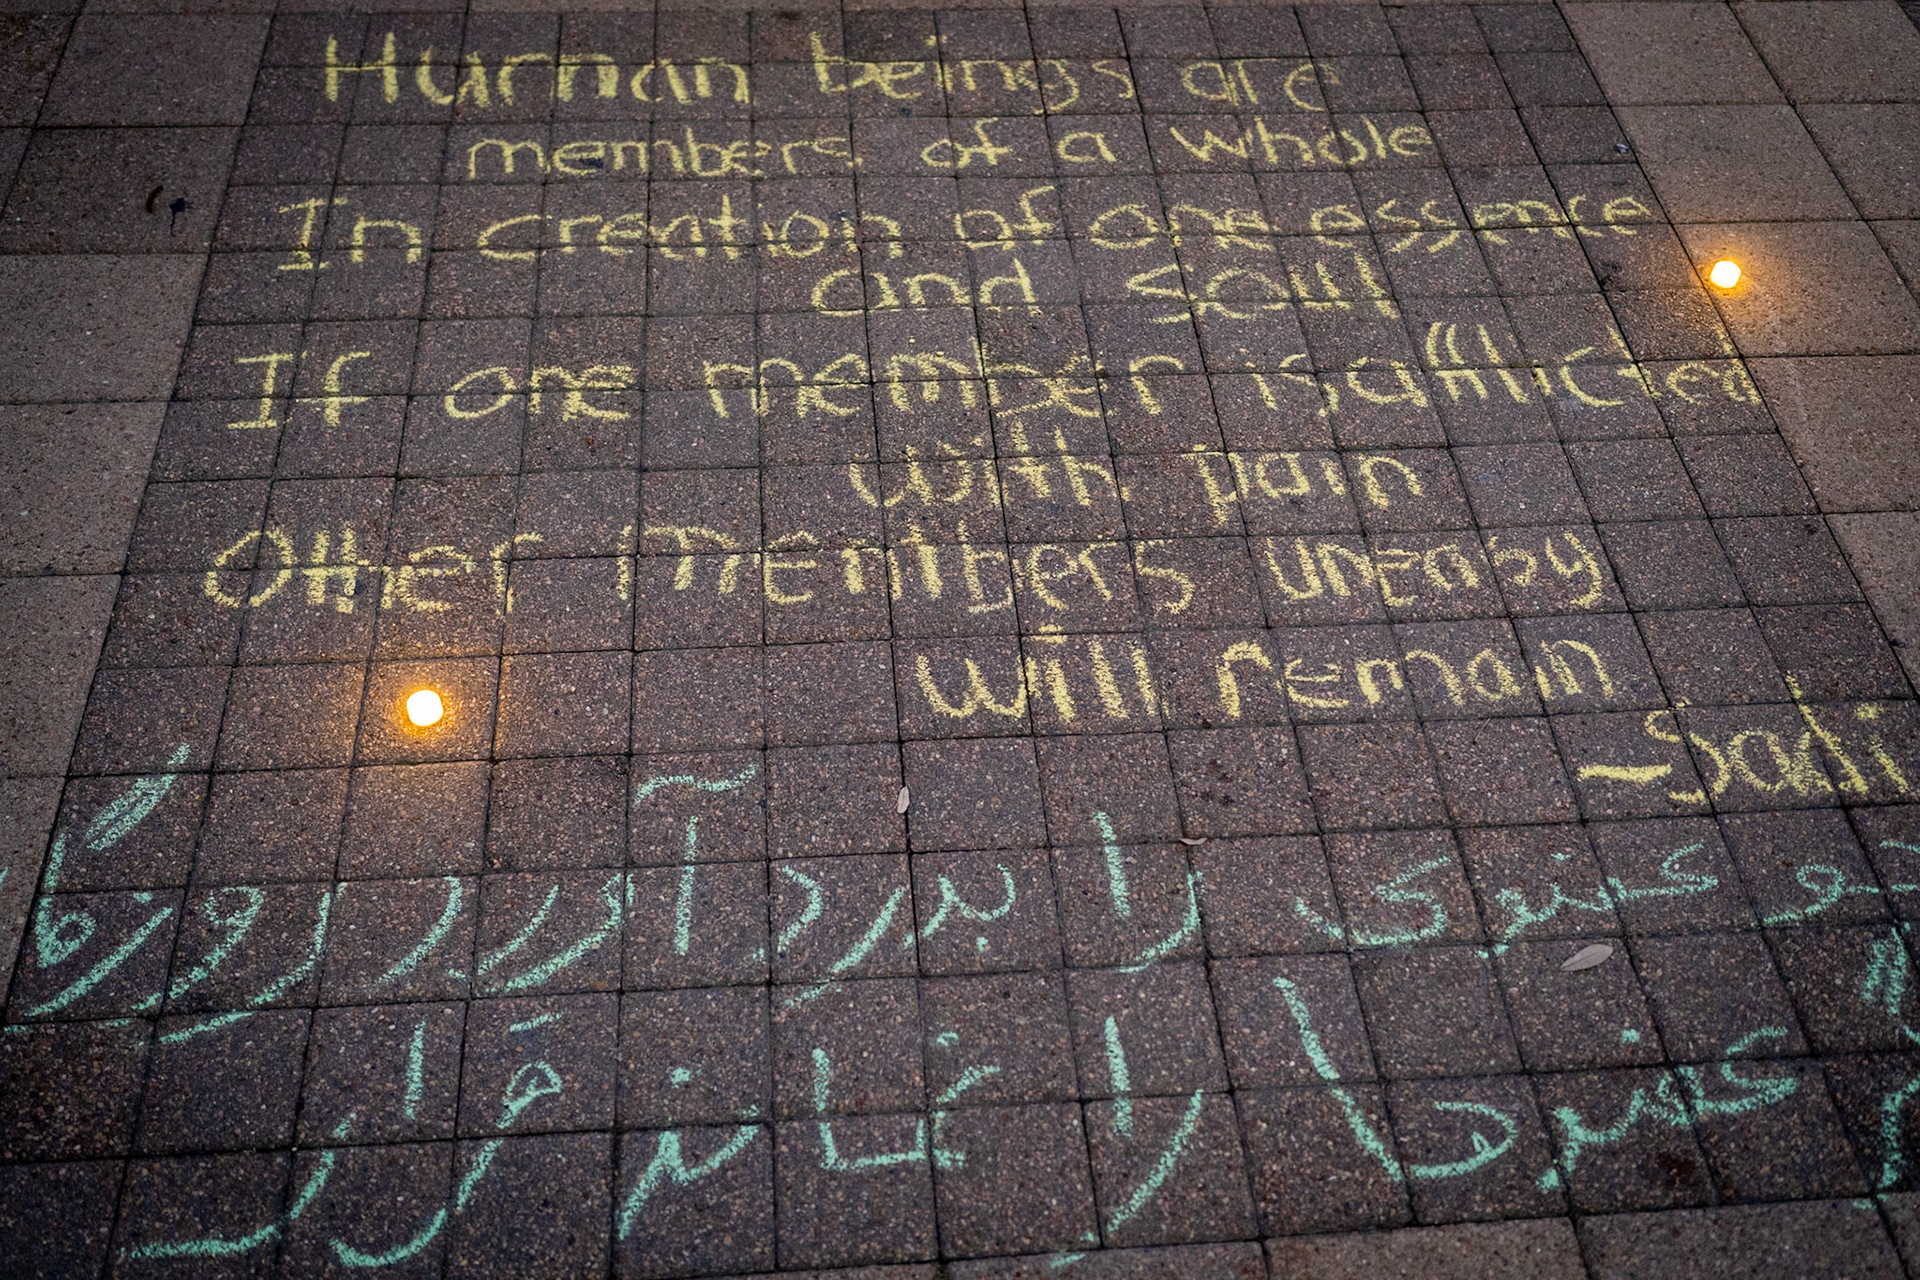 Human beings are
members of a whole
In creation of one essence
and soul
If one member is afflicted
with pain
Other members uneasy
will remain
-Sadi
چو عضوی را بدرد آورد روزگار
عضوها را نماند قرار